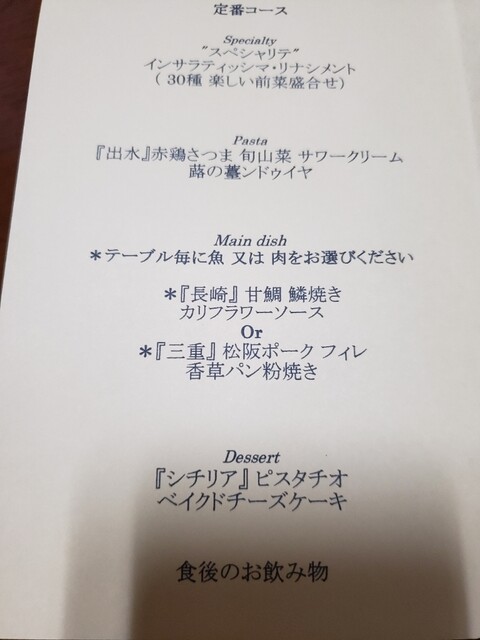 定番コース
Specialty
”スペシャリテ”
インサラティッシマ・リナシメント
( 30種 楽しい前菜盛合せ)
Pasta
『出水』赤鶏さつま 旬山菜 サワークリーム
蕗の薹ンドゥイヤ
Main dish
＊テーブル毎に魚 又は 肉をお選びください
＊『長崎』 甘鯛 鱗焼き
カリフラワーソース
Or
＊『三重』 松阪ポーク フィレ
香草パン粉焼き
Dessert
『シチリア』 ピスタチオ
ベイクドチーズケーキ
食後のお飲み物